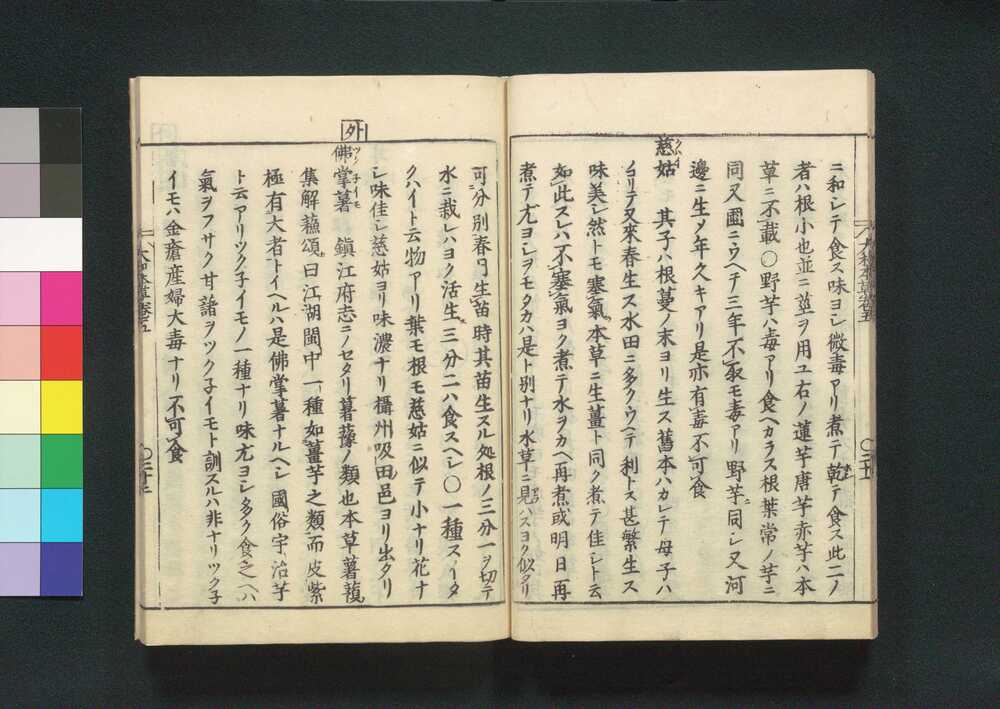 ニ和シテ食ス味ヨシ微毒アリ煮テ乾テ食ス此二ノ
者ハ根小也並ニ莖ヲ用ユ右ノ蓮芋唐芋赤芋ハ本
草ニ不載〇野芋ハ毒アリ食ヘカラス根葉常ノ芋ニ
同又圃ニウヘテ三年不取モ毒アリ野芋ニ同シ又河
邊ニ生メ年久キアリ是亦有毒不可食
慈姑 其子ハ根蔓ノ末ヨリ生ス舊本ハカレテ母子ハ
ヨリテ又來春生ス水田ニ多クウヘテ利トス甚繁生ス
味美シ然トモ塞氣本草ニ生薑ト同ク煮テ佳シト云
如此スレハ不塞氣ヨク煮テ水ヲカヘ再煮或明日再
煮テ尤ヨシヲモタカハ是ト別ナリ水草ニ見ハスヨク似タリ
可分別春月生苗時其苗生スル処根ノ三分一ヲ切テ
水ニ栽レハヨク活生三分二ハ食スヘシ〇一種スイタ
クハイト云物アリ葉モ根モ慈姑ニ似テ小ナリ花ナ
シ味佳シ慈姑ヨリ味濃ナリ攝州吸田邑ヨリ出タリ
外
佛掌薯 ツクネイモ 鎮江府志ニノセタリ薯蕷ノ類也本草薯蕷
集解蘓頌曰江湖閩中一種如薑芋之類而皮紫
極有大者トイヘルハ是佛掌薯ナルヘシ國俗宇治芋
ト云アリツク子イモノ一種ナリ味尤ヨシ多ク食之ヘハ
氣ヲフサク甘藷ヲツク子イモト訓スルハ非ナリツク子
イモハ金瘡産婦大毒ナリ不可食
大和本草卷之五